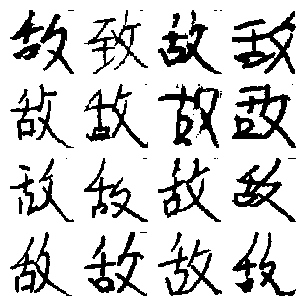 敌致敌敌
敌敌故敌
敌敌敌敌
敌敌敌敌